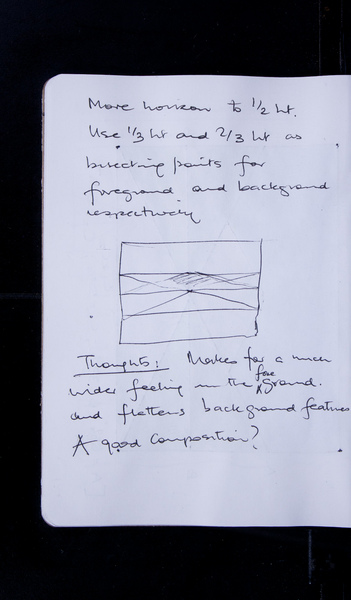 Move horizon to 1/2 ht.
Use 1/3 ht and 2/3 ht as
bisecting points for
foreground and background
respectively
Thoughts: Makes for a much
wider feeling in the foreground.
and flattens background features
A good composition?